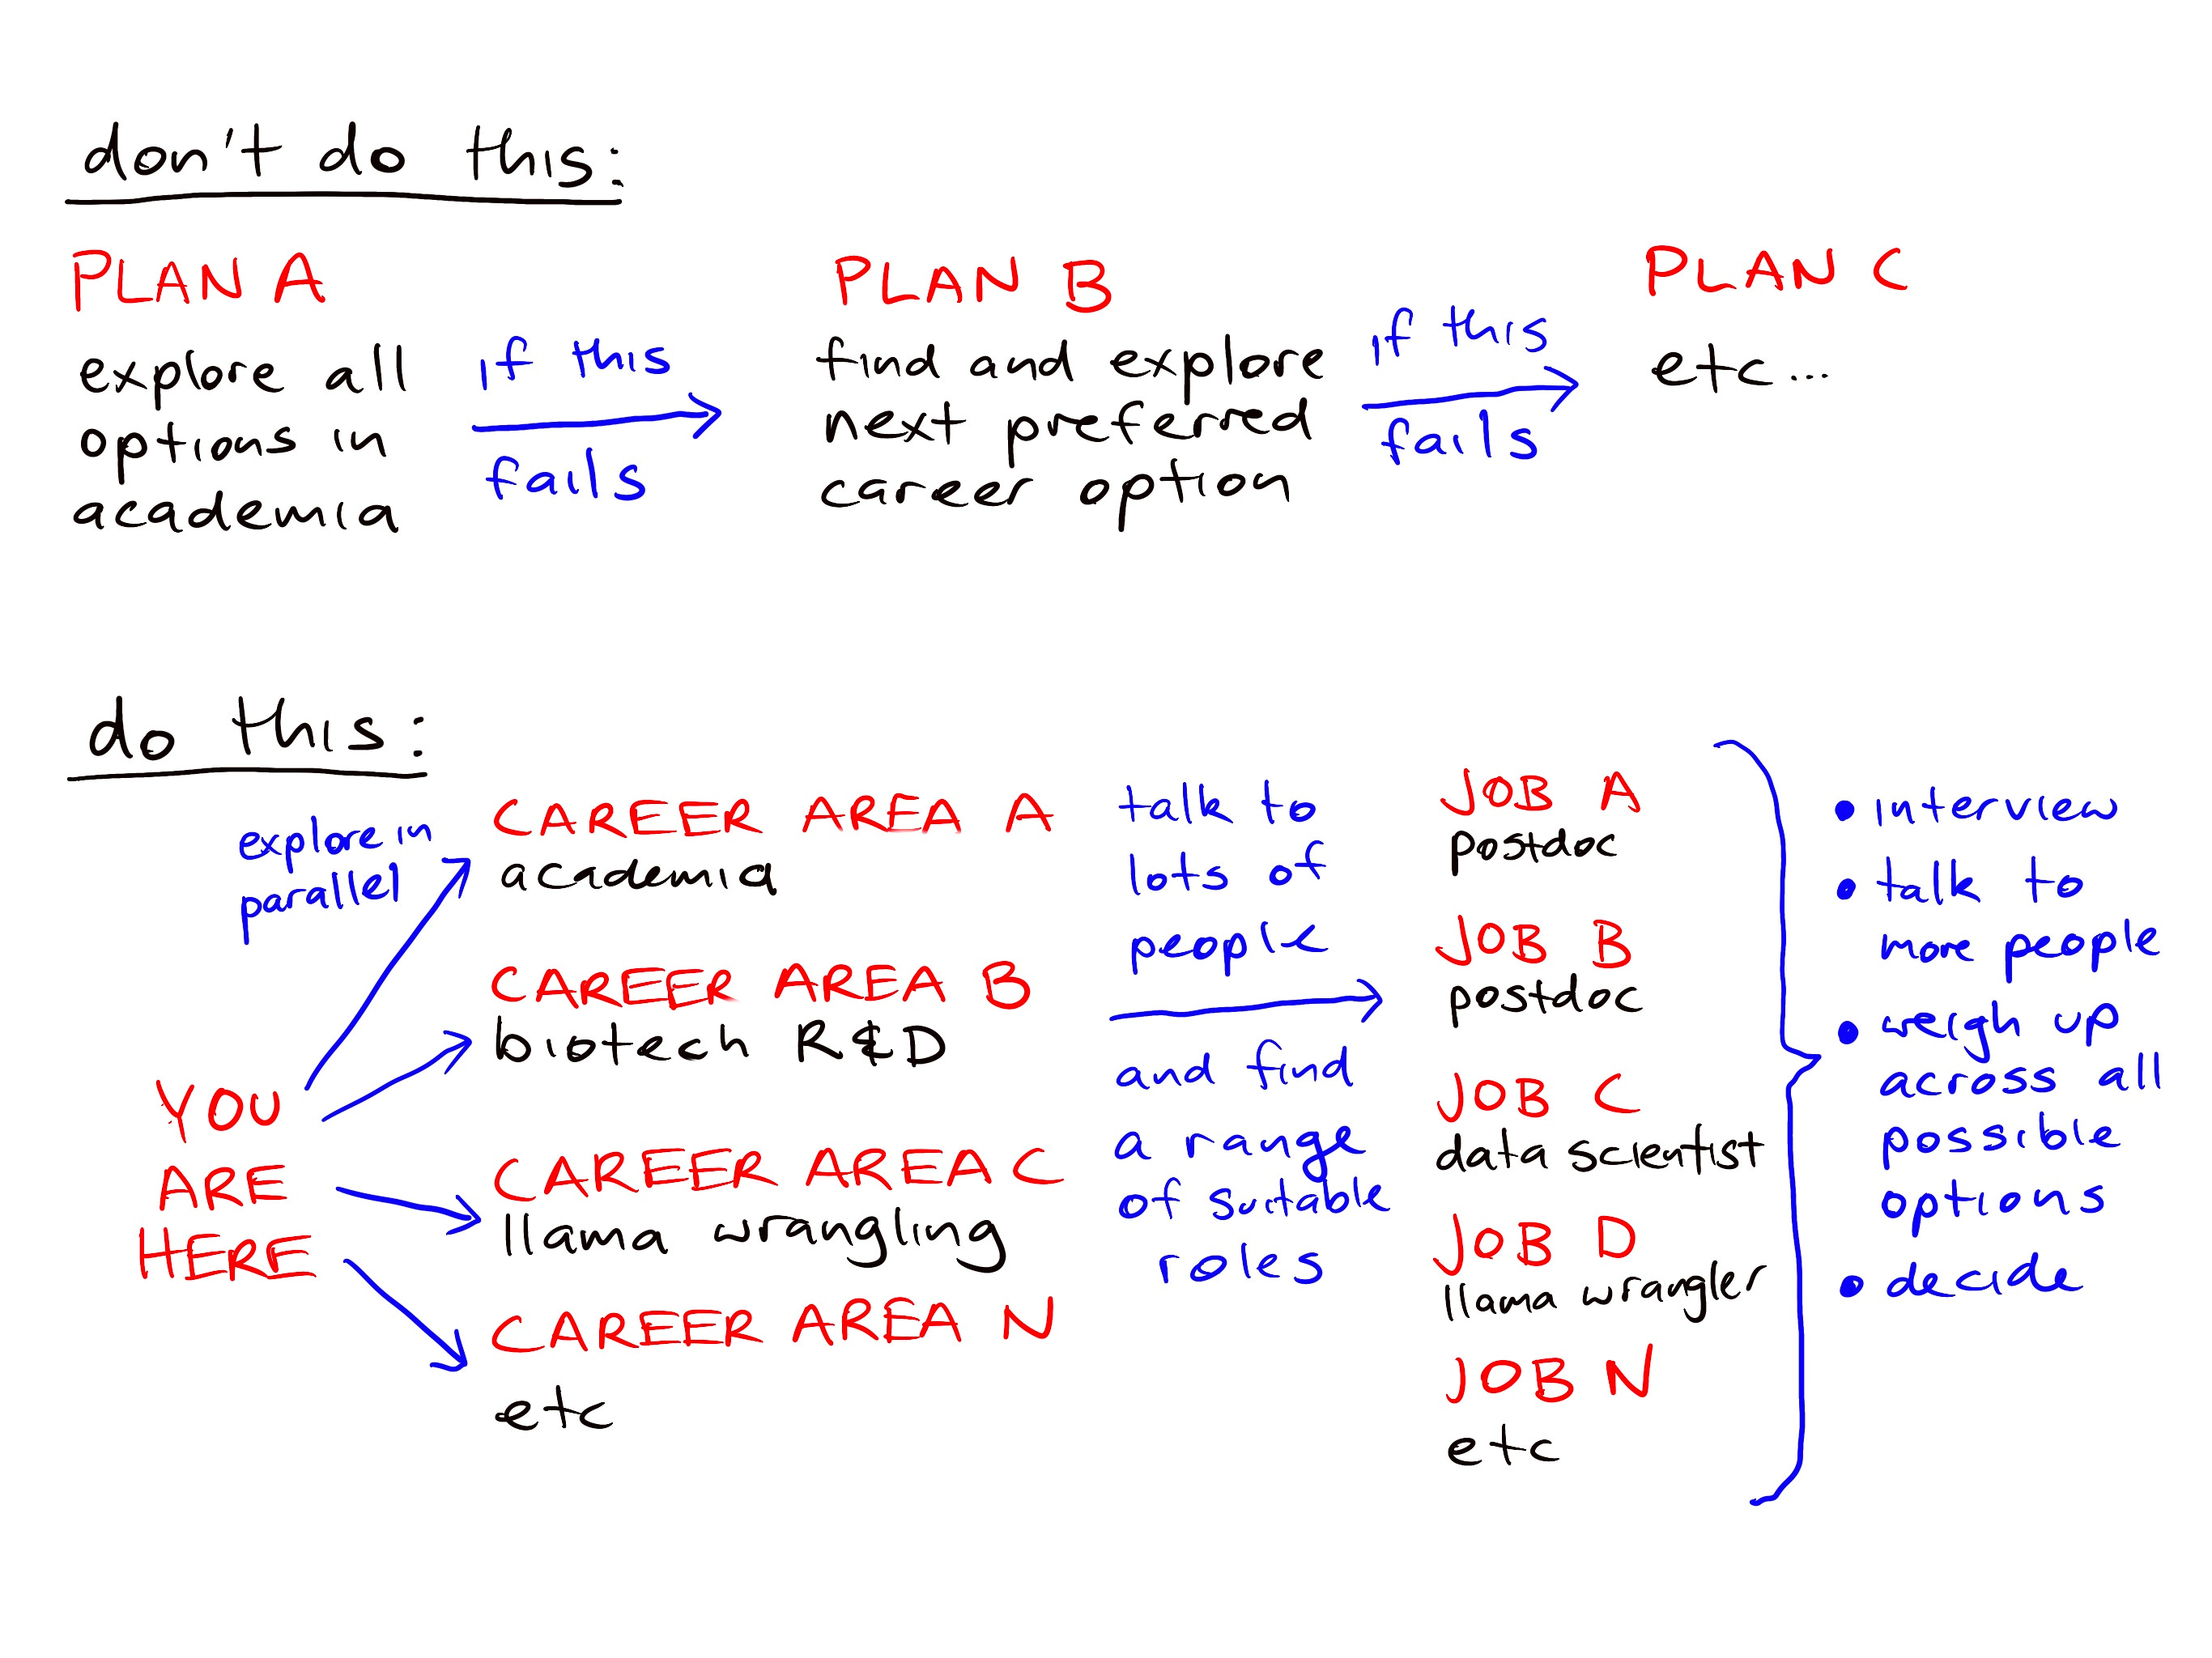 don't do this:
PLAN A
explore all
options in
academia
if this
fails
PLAN B
find and explore
next preferred
career option
if this
fails
PLAN C
etc...
do this:
explore in
parallel
YOU
ARE
HERE
CAREER AREA A
academia
CAREER AREA B
biotech R&D
CAREER AREA C
llama wrangling
CAREER AREA N
etc
talk to
lots of
people
and find
a range
of suitable
roles
JOB A
postdoc
JOB B
postdoc
JOB C
data scientist
JOB D
llama wrangler
JOB N
etc
• interview
• talk to
more people
• weigh up
across all
possible
options
• decide